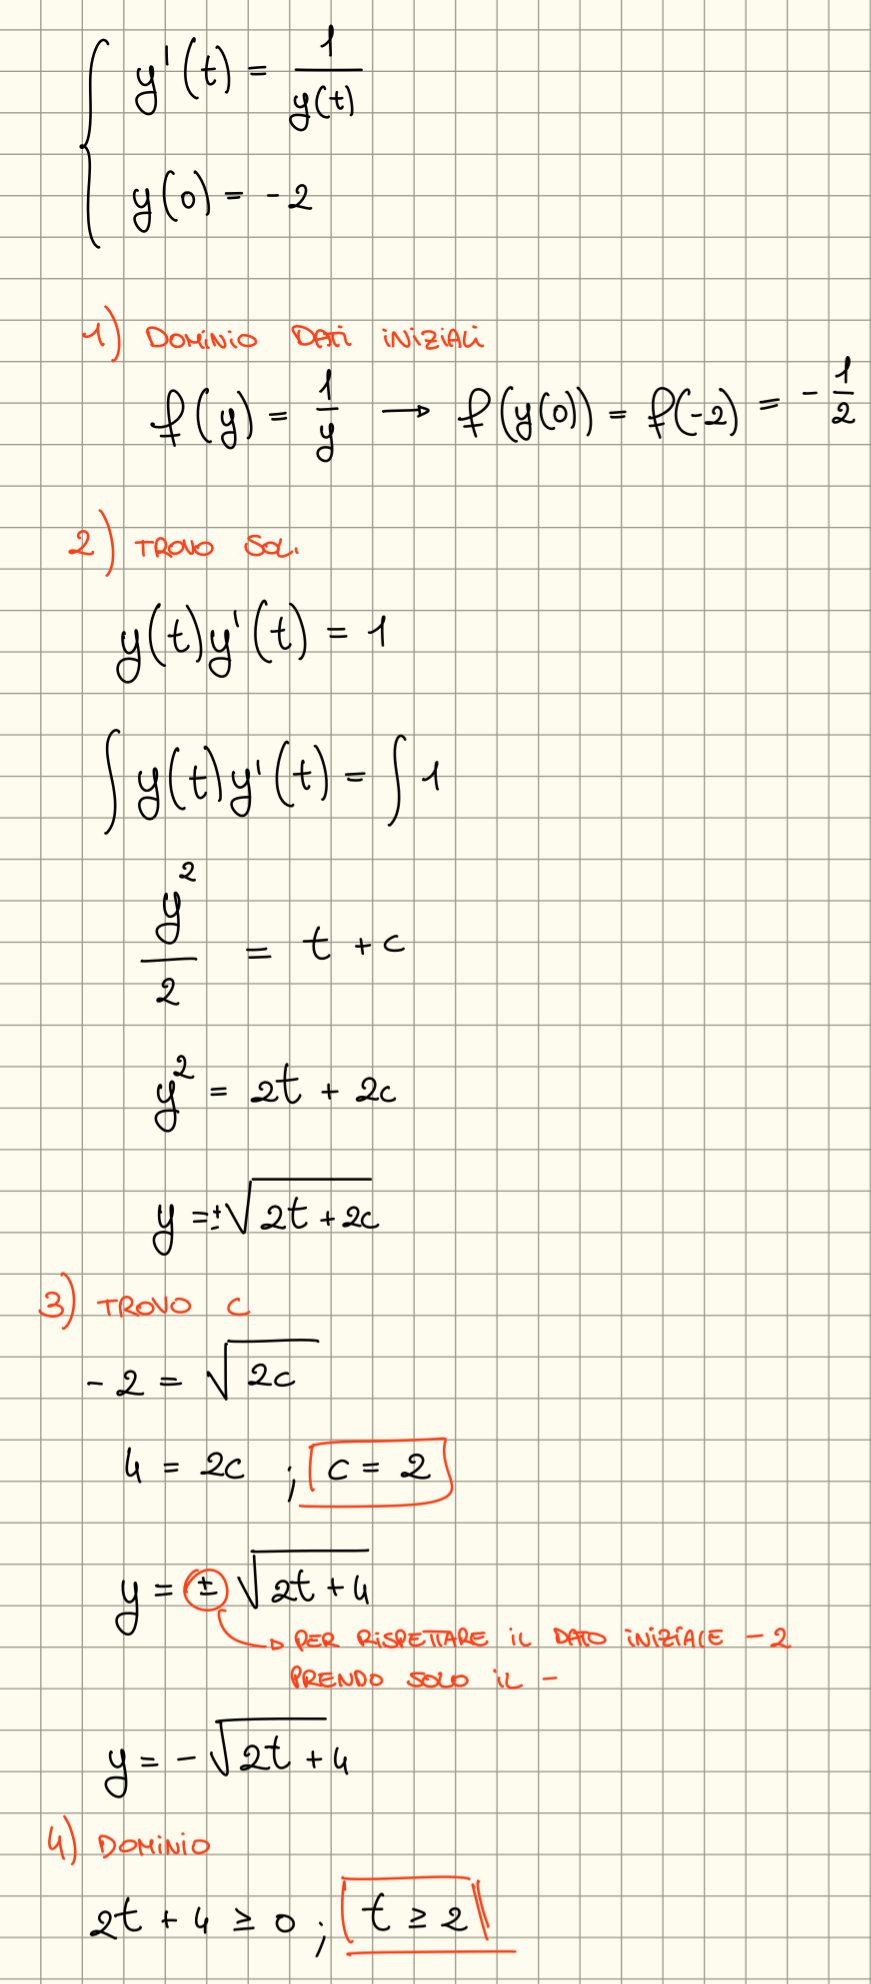 { y'(t) = 1/y(t)
y(0) = -2
1) DOMINIO DATI INIZIALI
f(y) = 1/y → f(y(0)) = f(-2) = -1/2
2) TROVO SOL.
y(t)y'(t) = 1
∫ y(t)y'(t) = ∫ 1
y²/2 = t + c
y² = 2t + 2c
y = ±√(2t + 2c)
3) TROVO C
-2 = √(2c)
4 = 2c ; c = 2
y = ± √(2t + 4)
→ PER RISPETTARE IL DATO INIZIALE -2
PRENDO SOLO IL -
y = -√(2t + 4)
4) DOMINIO
2t + 4 ≥ 0 ; t ≥ 2